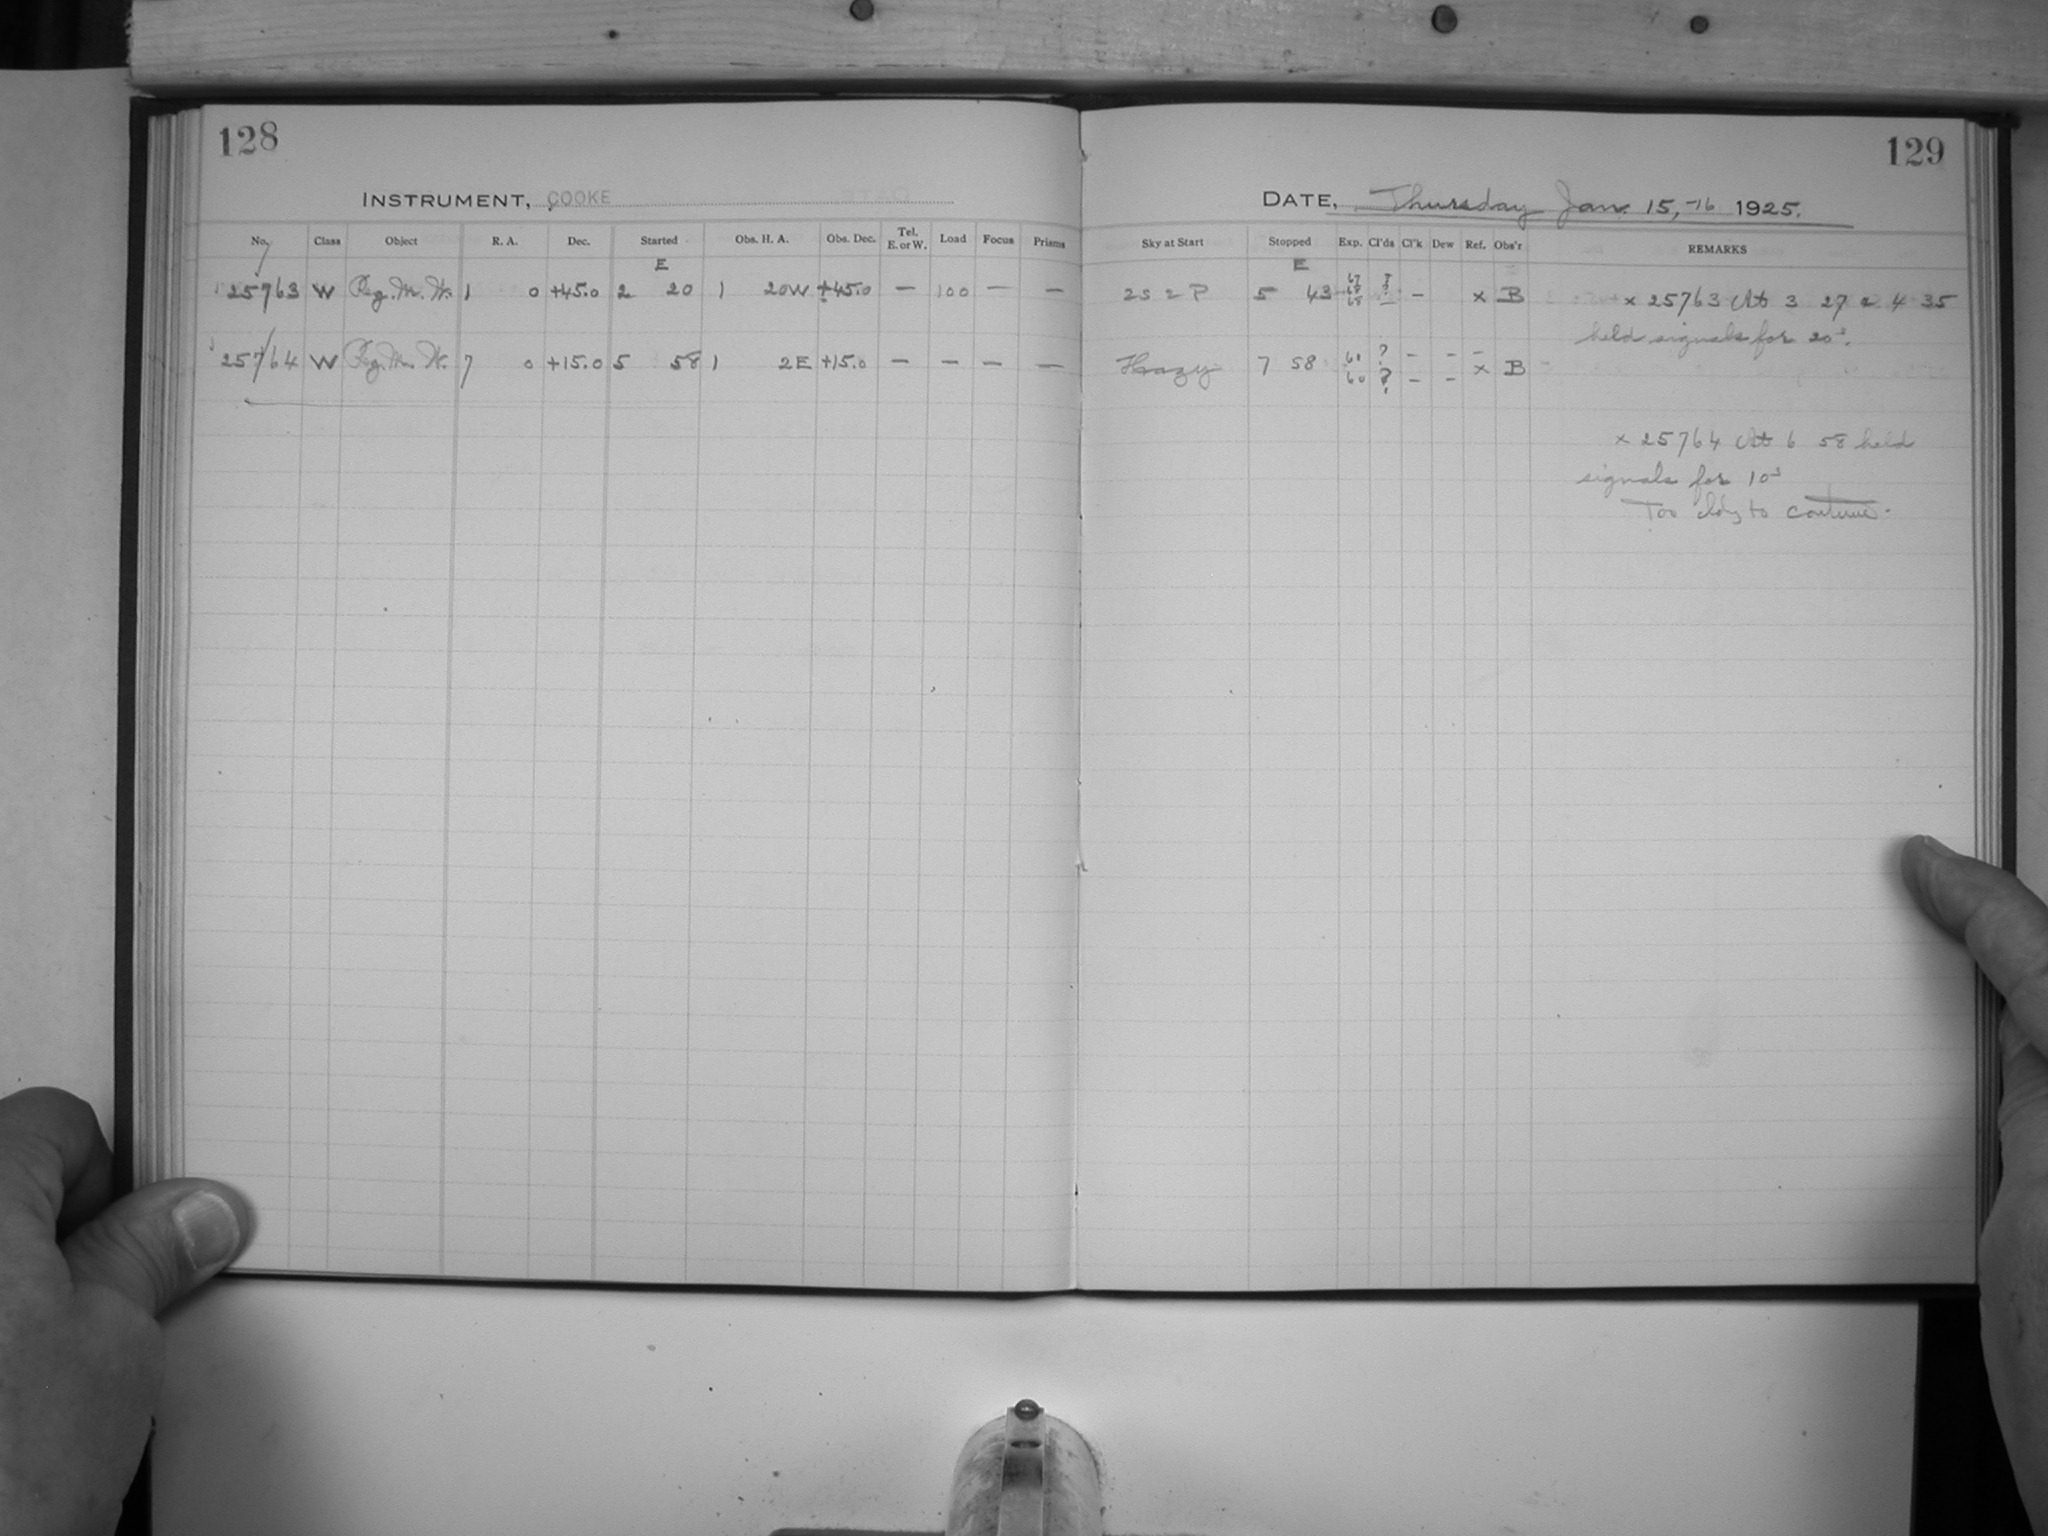 128
129
INSTRUMENT, COOKE
DATE, Thursday Jan. 15,-16 1925.
No. Class Object R. A. Dec. Started Obs. H. A. Obs. Dec. Tel. E. or W. Load Focus Prisms
Sky at Start Stopped Exp. Cl'ds Cl'k Dew Ref. Obs'r REMARKS
E
E
25763 W Reg. M. W. 1 0 +45.0 2 20 1 20W +45.0 — 100 — —
2S 2 P 5 43 ? ? — – x B x 25763 At 3 27 & 4 35
held signals for 20s.
25764 W Reg. M. W. 7 0 +15.0 5 58 1 2E +15.0 — — — —
Hazy 7 58 60 ? – – – x B
60 ? – –
x 25764 At 6 58 held
signals for 10s
Too cldy to continue.